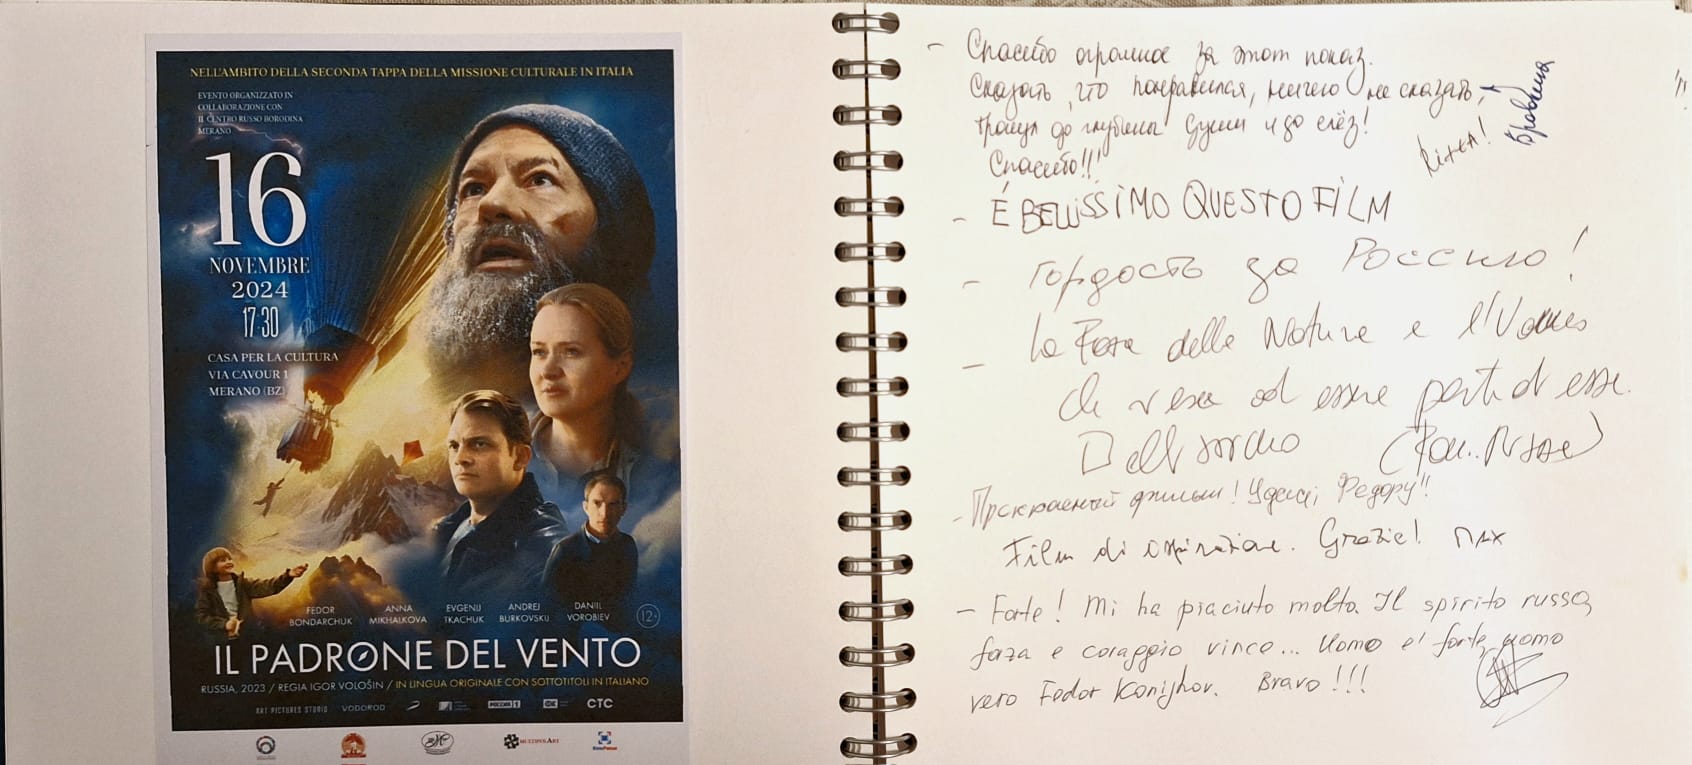 NELL'AMBITO DELLA SECONDA TAPPA DELLA MISSIONE CULTURALE IN ITALIA
EVENTO ORGANIZZATO IN
COLLABORAZIONE CON
IL CENTRO RUSSO BORODINA
MERANO
16
NOVEMBRE
2024
17:30
CASA PER LA CULTURA
VIA CAVOUR 1
MERANO (BZ)
FEDOR BONDARCHUK
ANNA MIKHALKOVA
EVGENIJ TKACHUK
ANDREJ BURKOVSKIJ
DANIIL VOROBIEV
12+
IL PADRONE DEL VENTO
RUSSIA, 2023 / REGIA IGOR VOLOŠIN / IN LINGUA ORIGINALE CON SOTTOTITOLI IN ITALIANO
ART PICTURES STUDIO VODOROD РОССИЯ 1 ОК СТС
MULTIPOLART
- Спасибо огромное за этот показ.
Сказать, что понравился, ничего не сказать,
тронул до глубины души и до слёз!
Спасибо!!!
- È BELLISSIMO QUESTO FILM
- Гордость за Россию!
- La Forza della Natura e l'Uomo
che ad essere parte di essa.
- Прекрасный фильм! Удачи, Федору!!
Film di ispirazione. Grazie! Max
- Forte! Mi ha piaciuto molto. Il spirito russo,
forza e coraggio vince... Uomo e' forte, uomo
vero Fedor Konijhov. Bravo!!!